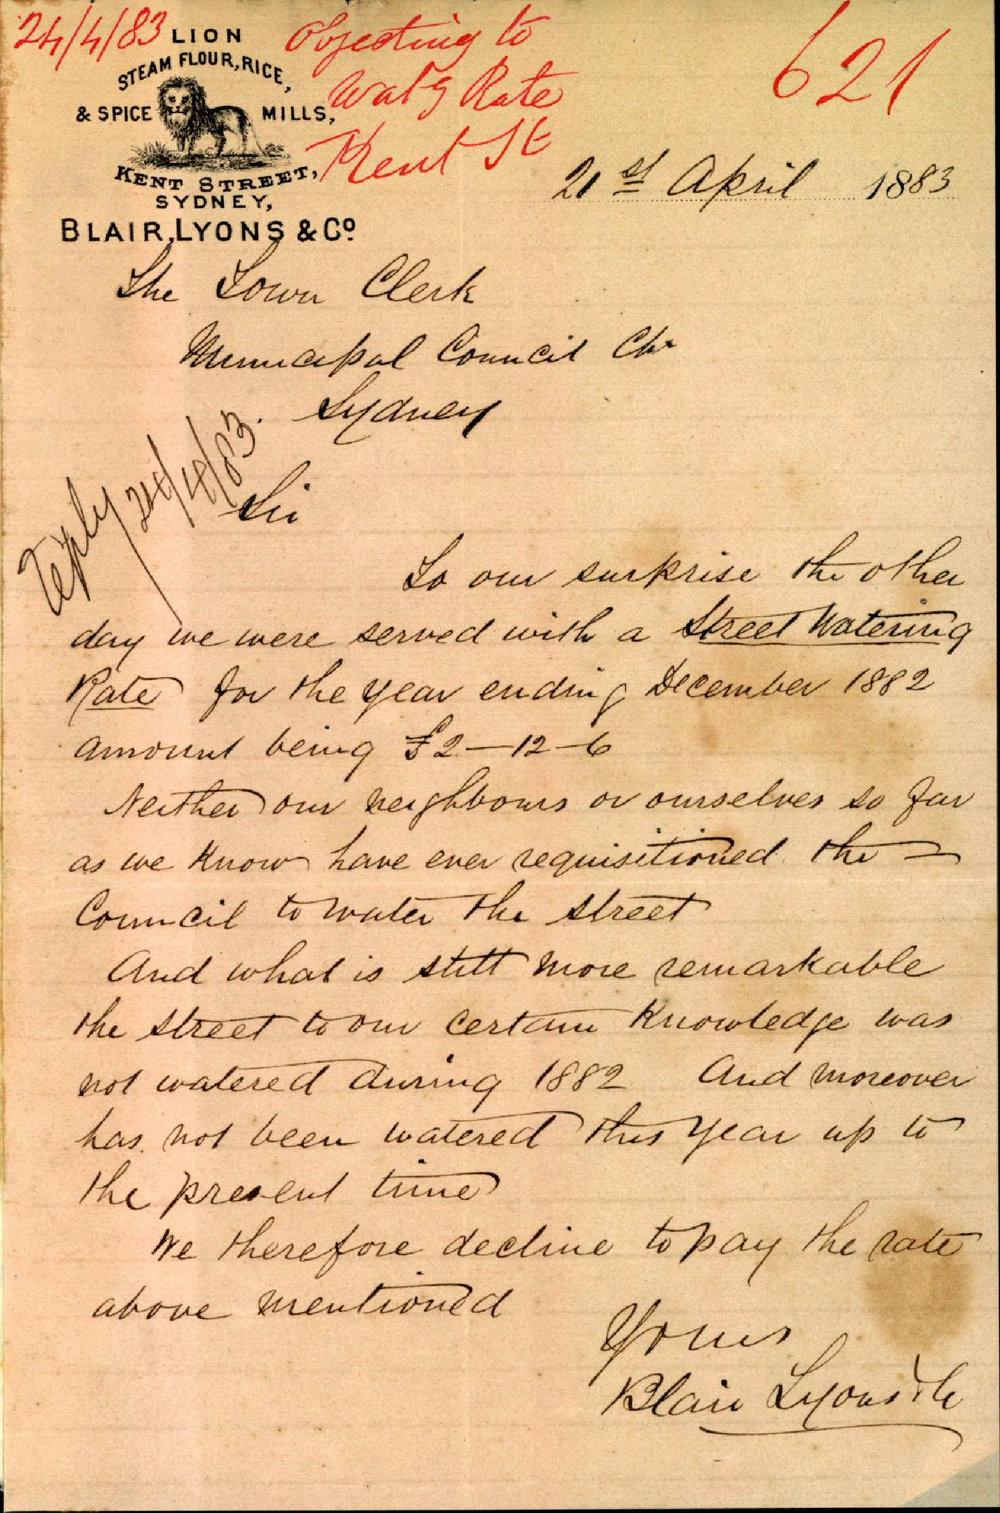 24/4/83
Objecting to
Wat'g Rate
Kent St
621
LION
STEAM FLOUR, RICE,
& SPICE MILLS,
KENT STREET,
SYDNEY,
BLAIR, LYONS & Co.
21st April 1883
The Town Clerk
Municipal Council
Sydney
Reply 24/4/83.
Sir
To our surprise the other
day we were served with a Street Watering
Rate for the year ending December 1882
amount being £2-12-6
Neither our neighbours or ourselves so far
as we know have ever requisitioned the
Council to water the street
And what is still more remarkable
the street to our certain knowledge was
not watered during 1882 And moreover
has not been watered this year up to
the present time
We therefore decline to pay the rate
above mentioned
Yours
Blair Lyons & Co